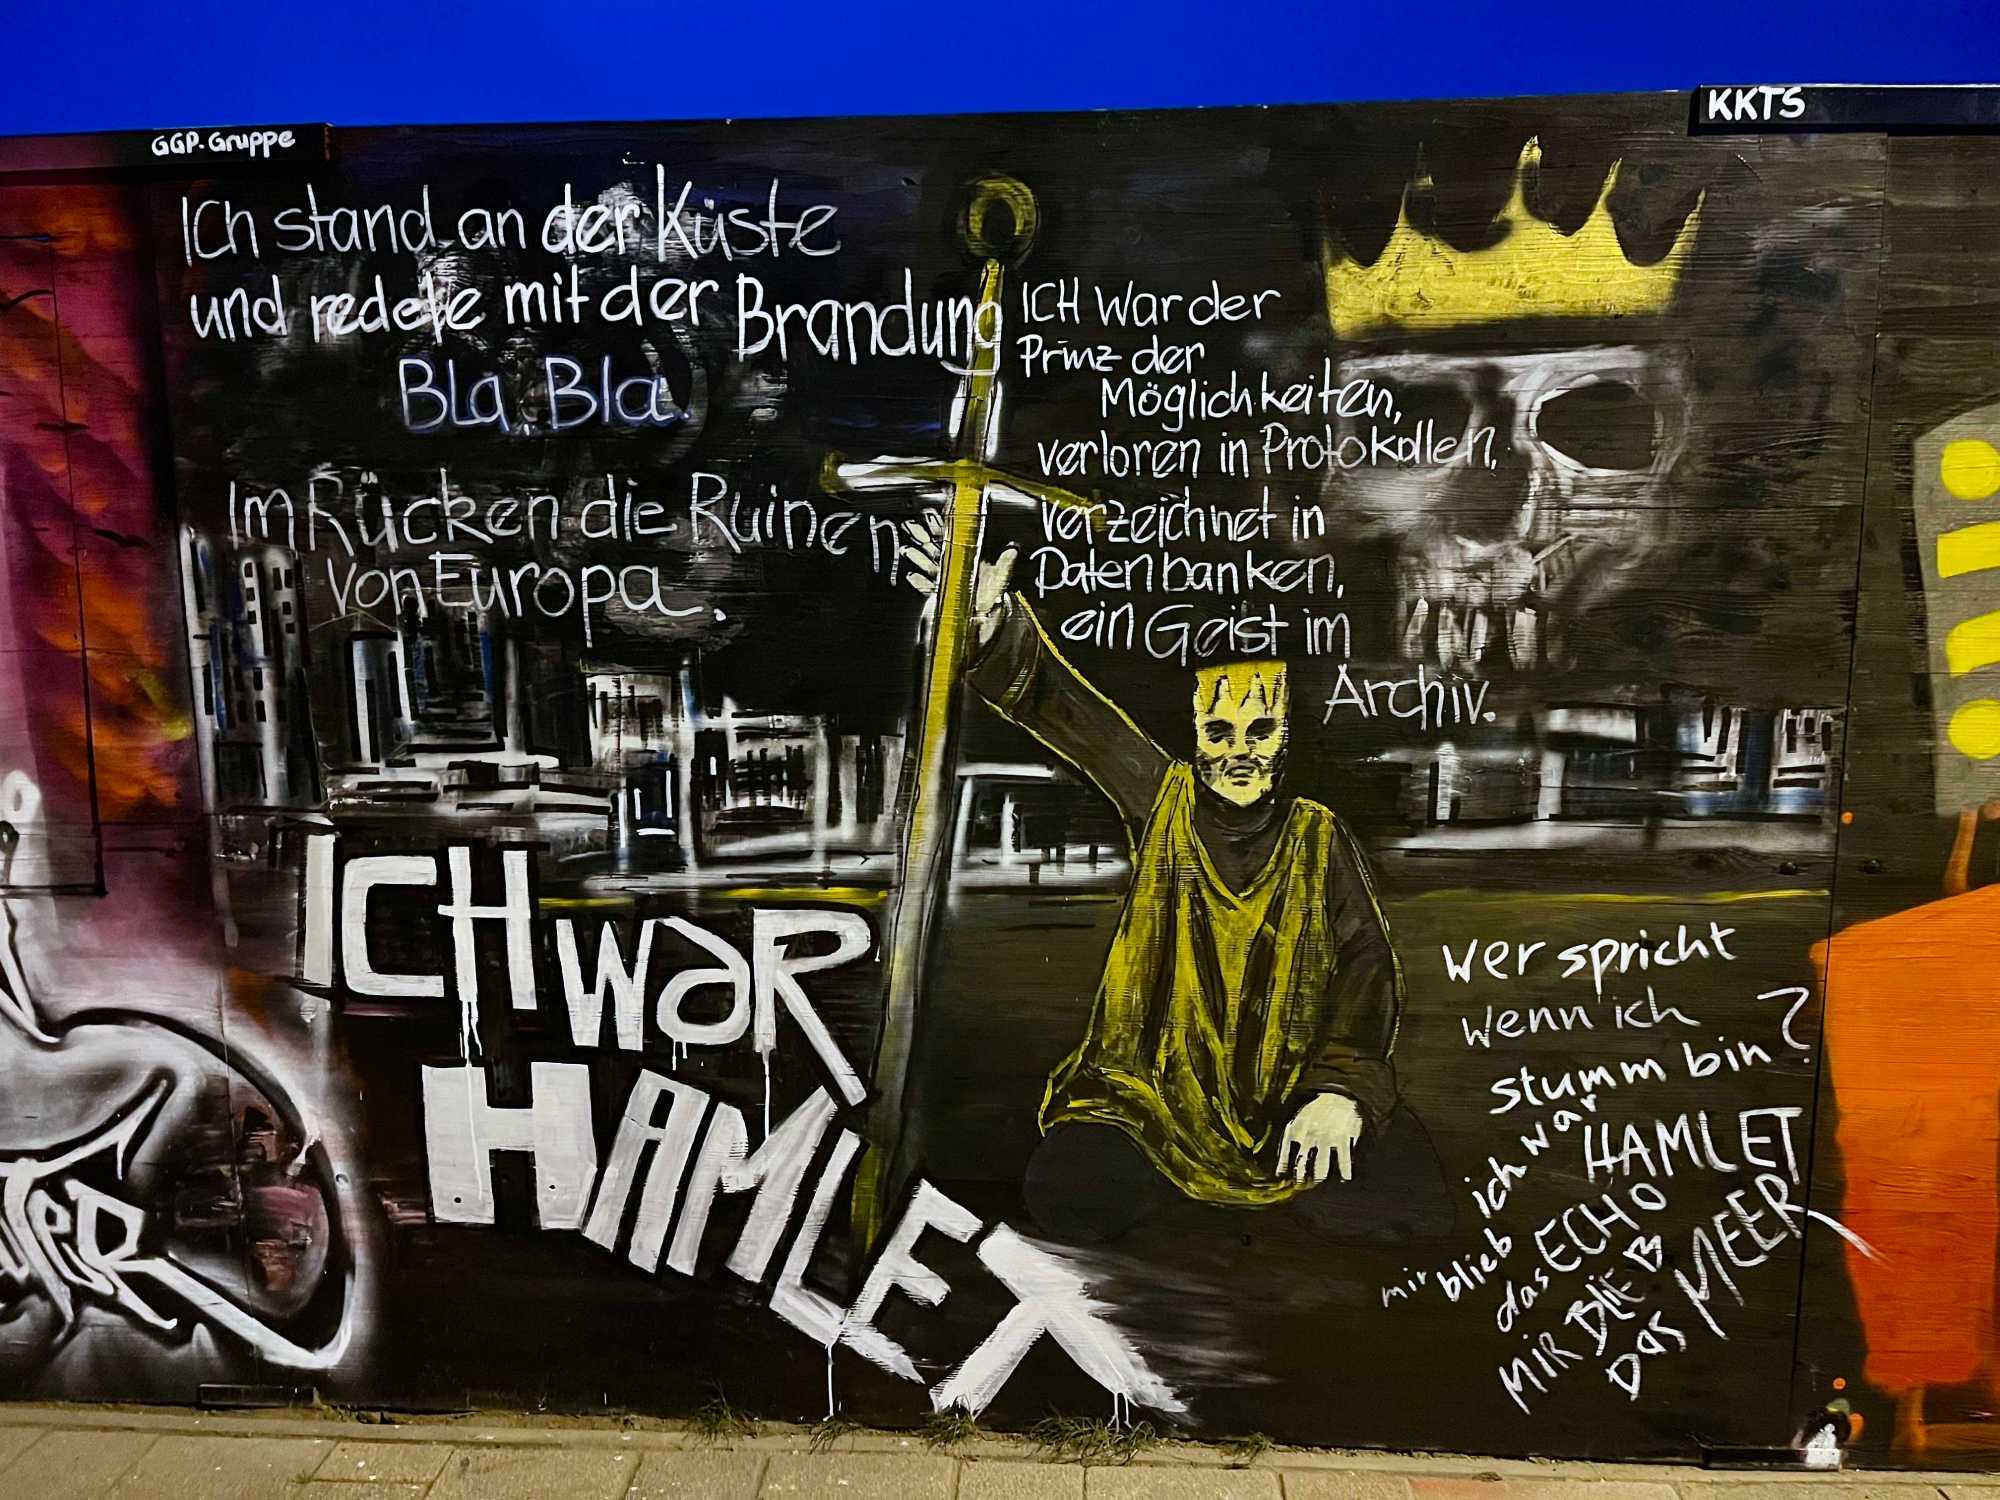 GGP-Gruppe
KKTS
Ich stand an der Küste
und redete mit der Brandung
BLa, BLa.
Im Rücken die Ruinen
von Europa.
ICH war der
Prinz der
Möglichkeiten,
verloren in Protokollen,
verzeichnet in
Datenbanken,
ein Geist im
Archiv.
ICH waR
HAMLET
wer spricht
wenn ich
stumm bin?
ich war HAMLET
mir blieb das ECHO
MIR BLIEB
DAS MEER